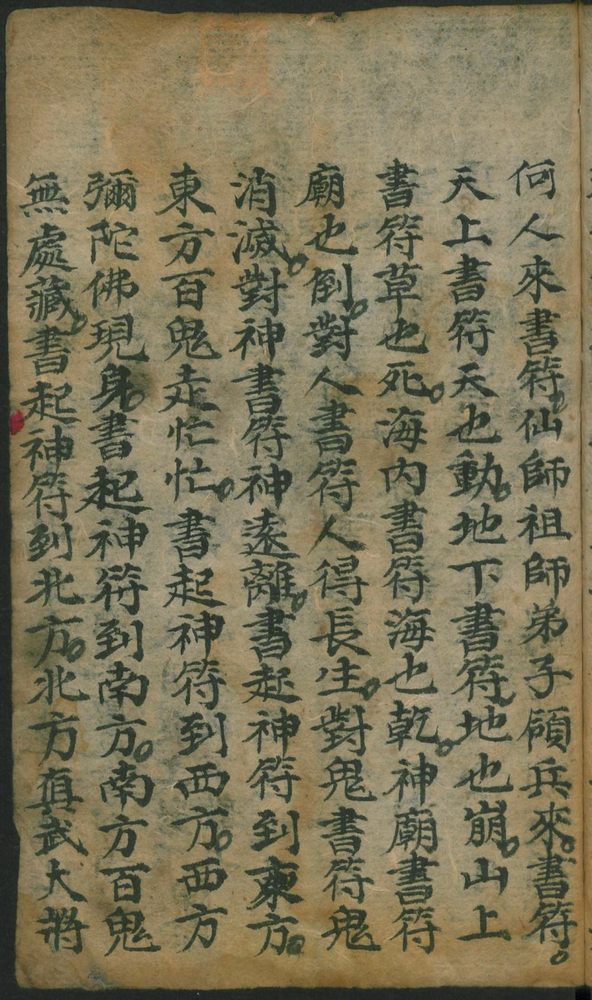 何人來書符。仙師祖師弟子領兵來。書符。
天上書符天也動。地下書符。地也崩。山上
書符草也死。海内書符海也乾。神廟書符
廟也倒。對人書符人得長生。對鬼書符鬼
消滅。對神書符神遠離。書起神符到東方。
東方百鬼走忙忙。書起神符到西方。西方
彌陀佛現身。書起神符到南方。南方百鬼
無處藏。書起神符到北方。北方真武大將